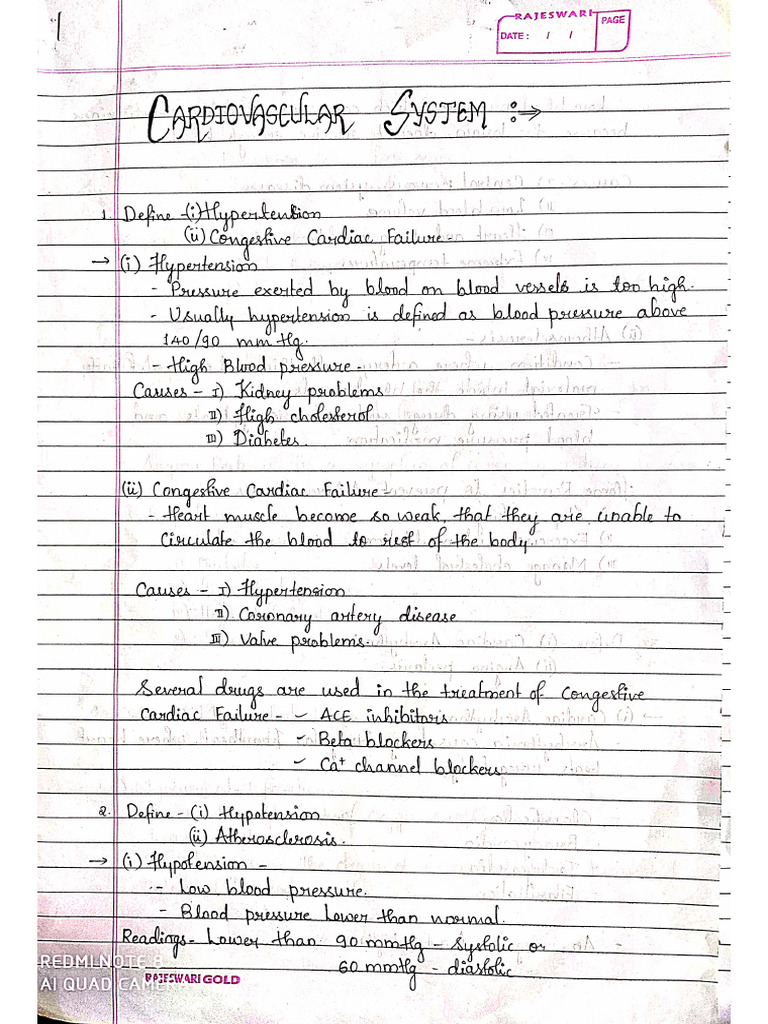 1
RAJESWARI
PAGE
DATE: / /
CARDIOVASCULAR SYSTEM :→
1. Define -(i) Hypertension
(ii) Congestive Cardiac Failure
→ (i) Hypertension
- Pressure exerted by blood on blood vessels is too high.
- Usually hypertension is defined as blood pressure above
140/90 mm Hg.
- High Blood pressure -
Causes - I) Kidney problems
II) High cholesterol
III) Diabetes.
(ii) Congestive Cardiac Failure -
- Heart muscle become so weak, that they are unable to
circulate the blood to rest of the body
Causes - I) Hypertension
II) Coronary artery disease
III) Valve problems.
Several drugs are used in the treatment of congestive
Cardiac Failure - ✓ ACE inhibitors
✓ Beta blockers
✓ Ca+ channel blockers
2. Define - (i) Hypotension
(ii) Atherosclerosis.
→ (i) Hypotension -
- Low blood pressure.
- Blood pressure lower than normal.
Readings - Lower than 90 mmHg - Systolic or
60 mmHg - diastolic
REDMI NOTE 8
AI QUAD CAMERA
RAJESWARI GOLD